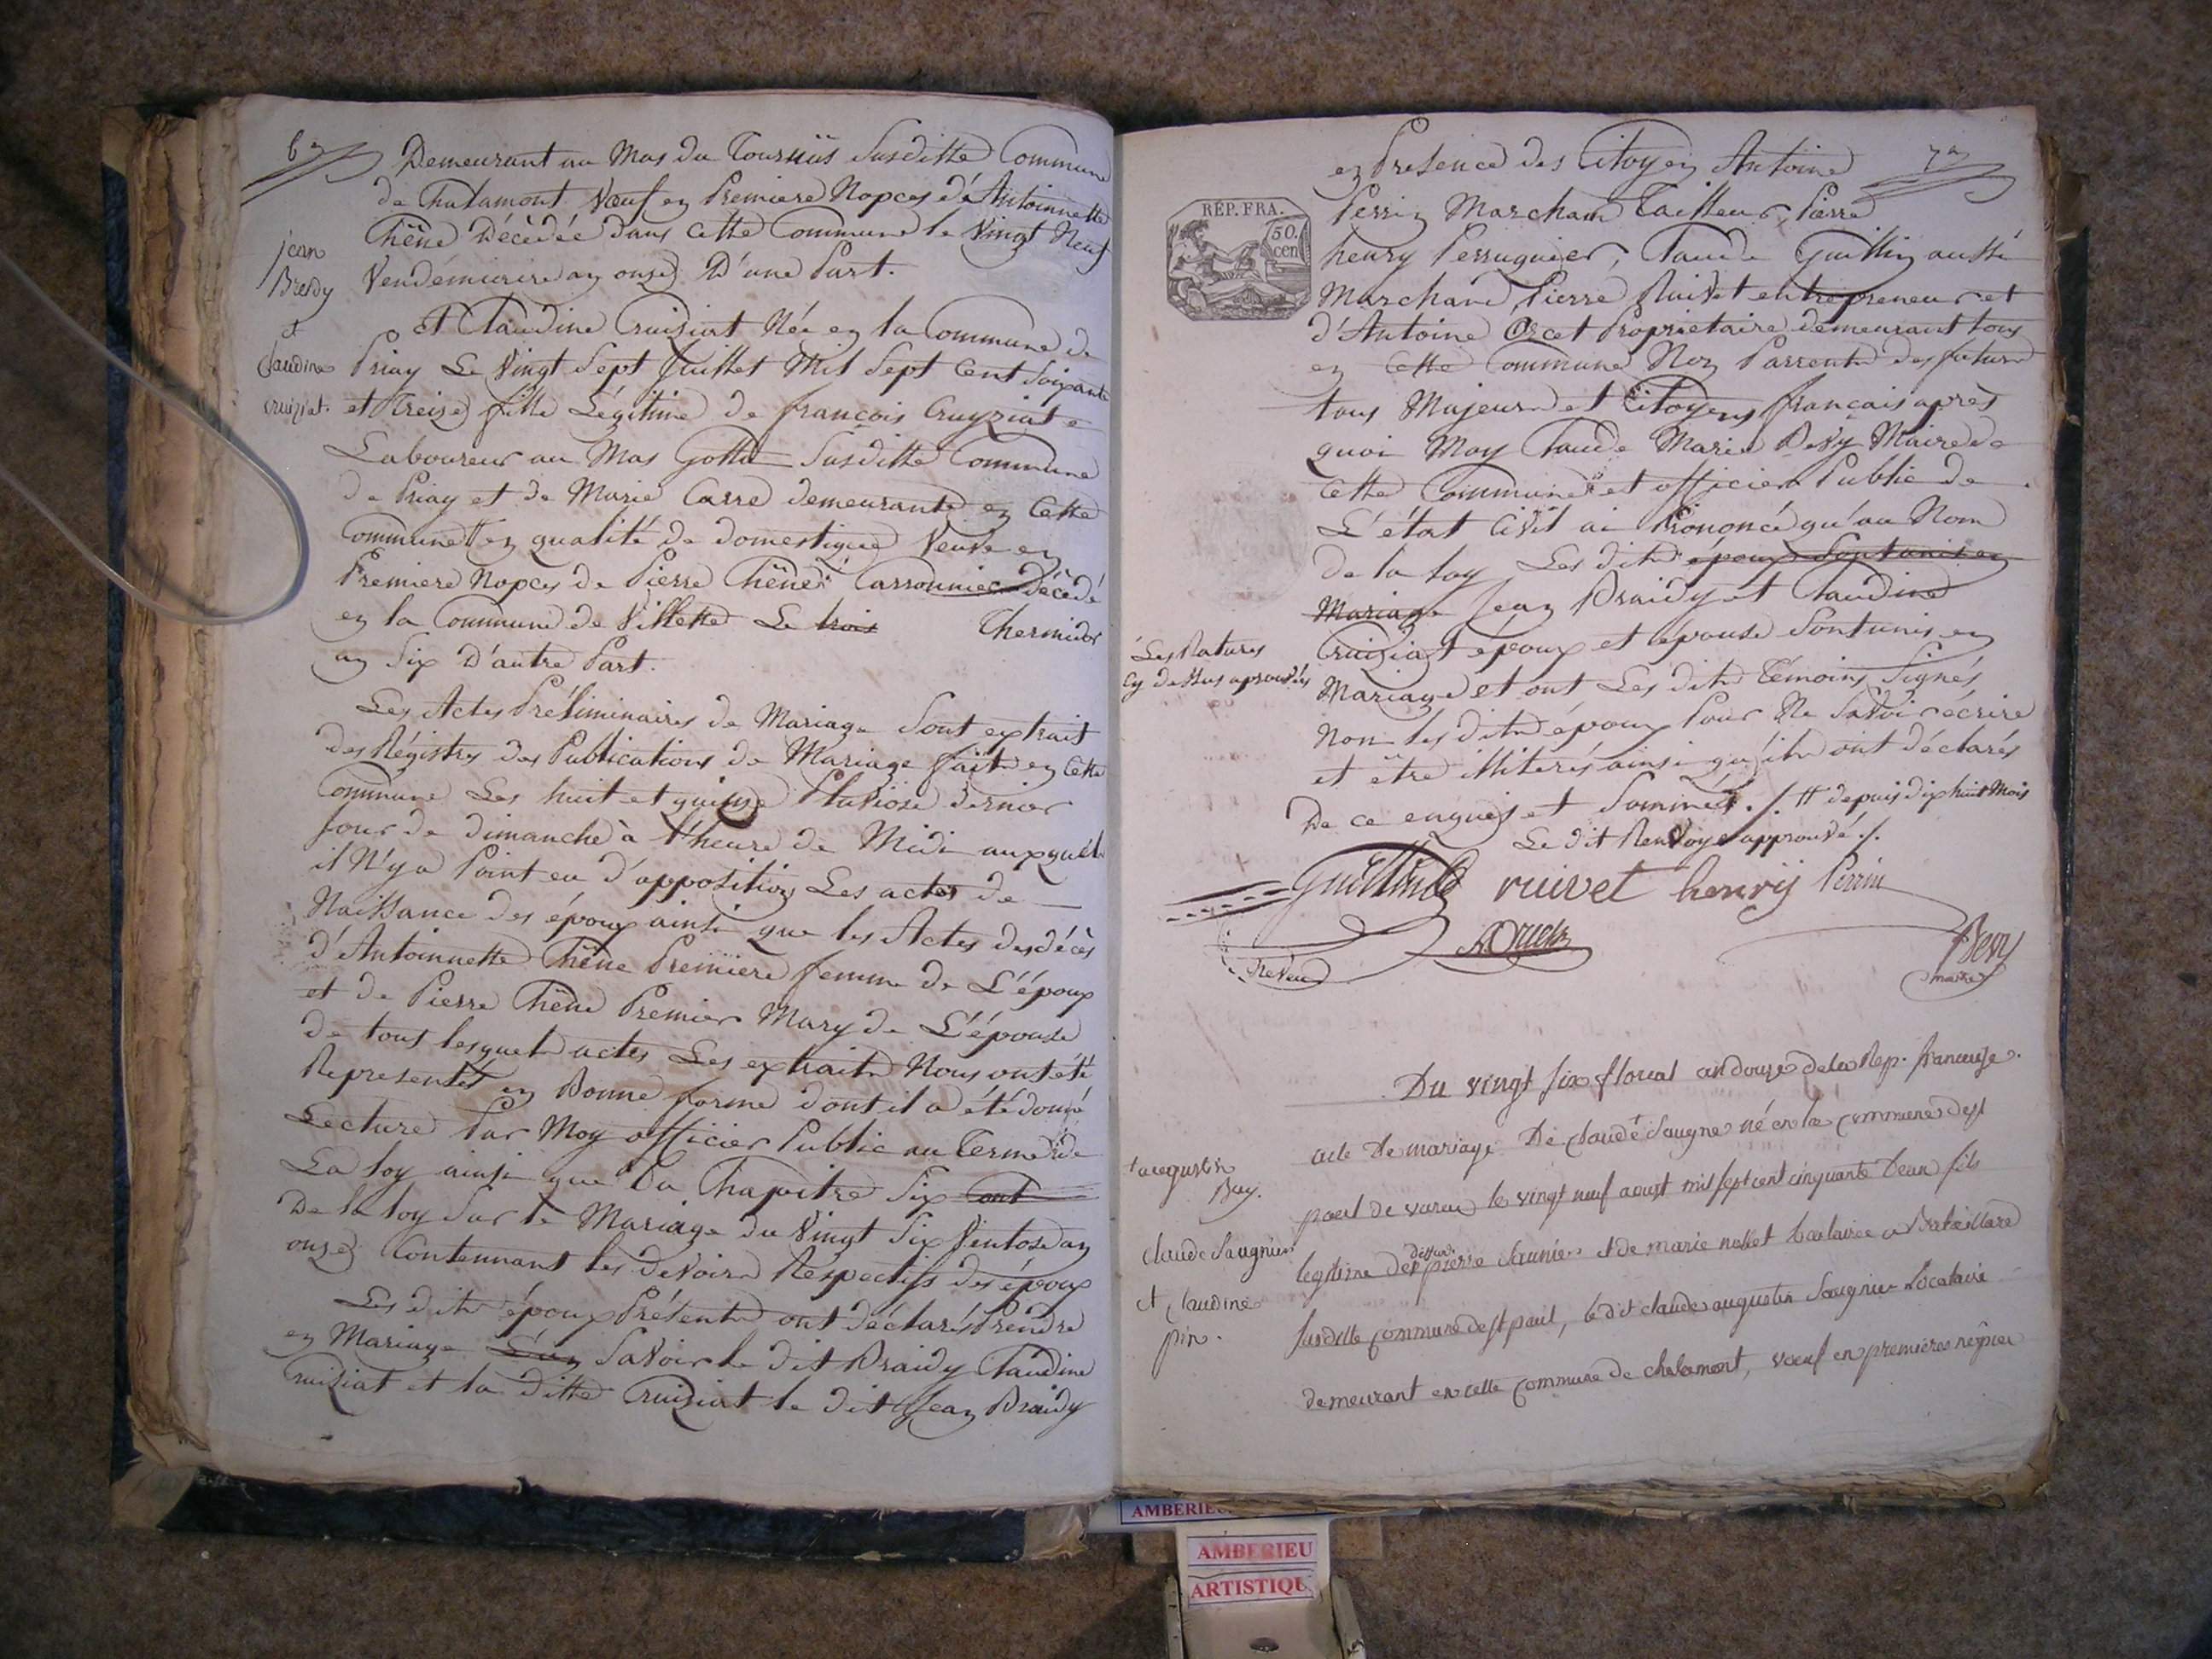 6e
Demeurant au Mas du Tournüs Susditte Commune
de Chalamont Vœuf en Premiere Nopces d'Antoinnette
Chêne Décédée dans Cette Commune le Vingt Neuf
Vendémiaire an onze D'une Part.
jean
Bredy
et
Claudine
cruiziat.
et Claudine Cruiziat Née en la Commune de
Priay Le Vingt Sept Juillet Mil Sept Cent Soixante
et Treize fille Légitime de françois Cruyziat
Laboureur au Mas Gottu Susditte Commune
de Priay et de Marie Carre demeurante en Cette
Commune # en qualité de Domestique Veuve en
Premiere Nopces de Pierre Chêne Carronnier Décédé
en la Commune de Villette Le trois Thermidor
an Six D'autre Part.
Les Actes Préliminaires de Mariage Sont extrait
des Régistres des Publications de Mariage fait en Cette
Commune Les huit et quinze Pluviose dernier
Jour de dimanche à l'heure de Midi auxquels
il N'y a Point eu d'opposition Les actes de
Naissance des époux ainsi que les Actes des décès
d'Antoinnette Chêne Premiere femme de L'époux
et de Pierre Chêne Premier Mary de L'épouse
de tous lesquels actes Les extraits Nous ont été
Représentés en Bonne forme dont il a été donné
Lecture Par Moy officier Public au Terme de
La loy ainsi que du Chapitre Six
De la loy Sur le Mariage du Vingt Six Ventose an
onze Contennant les devoirs Respectifs des époux
Les dits époux Présents ont déclarés Prendre
en Mariage Savoir le dit Braidy Claudine
Cruiziat et la ditte Cruiziat le dit Jean Braidy
7e
RÉP. FRA.
50.
cen
en Presence des Citoyen Antoine
Perrin Marchand Tailleur, Pierre
henry Perruquier, Claude Guillin aussi
Marchand Pierre Ruivet entrepreneur et
d'Antoine Orcet Proprietaire demeurant tous
en Cette Commune Non Parrents des futurs
tous Majeurs et Citoyens français après
quoi Moy Claude Marie Bevy Maire de
Cette Commune et officier Public de
L'état Civil ai Prononcé qu'au Nom
de la loy Les dits epoux Sont unis en
Mariage Jean Braidy et Claudine
Cruiziat époux et épouse Sont unis en
Mariage et ont Les dits Témoins Signés
Non les dits époux Pour Ne Savoir écrire
et être illiterés ainsi qu'ils ont déclarés
De ce enquis et Sommés ./. # depuis dix huit Mois
Le dit Renvoy approuvé ./.
Les Ratures
Cy dessus aprouvées
Guillin ruivet henrij Perrin
AOrcet
Bevy
maire
Du vingt six floreal an douze de la Rep. francaise.
acte De mariage De claude † Saugne né en la commune de st
paul de varax le vingt neuf aoust mil sept cent cinquante deux fils
legitime de deffunt pierre Saunier et de marie nallet
susditte commune de st paul, le dit claude augustin Saugnier Locataire
demeurant en cette commune de chalamont, voeuf en premieres nopces
† augustin
Bey.
claude Saugnier
et claudine
pin.
AMBERIEU
AMBERIEU
ARTISTIQU